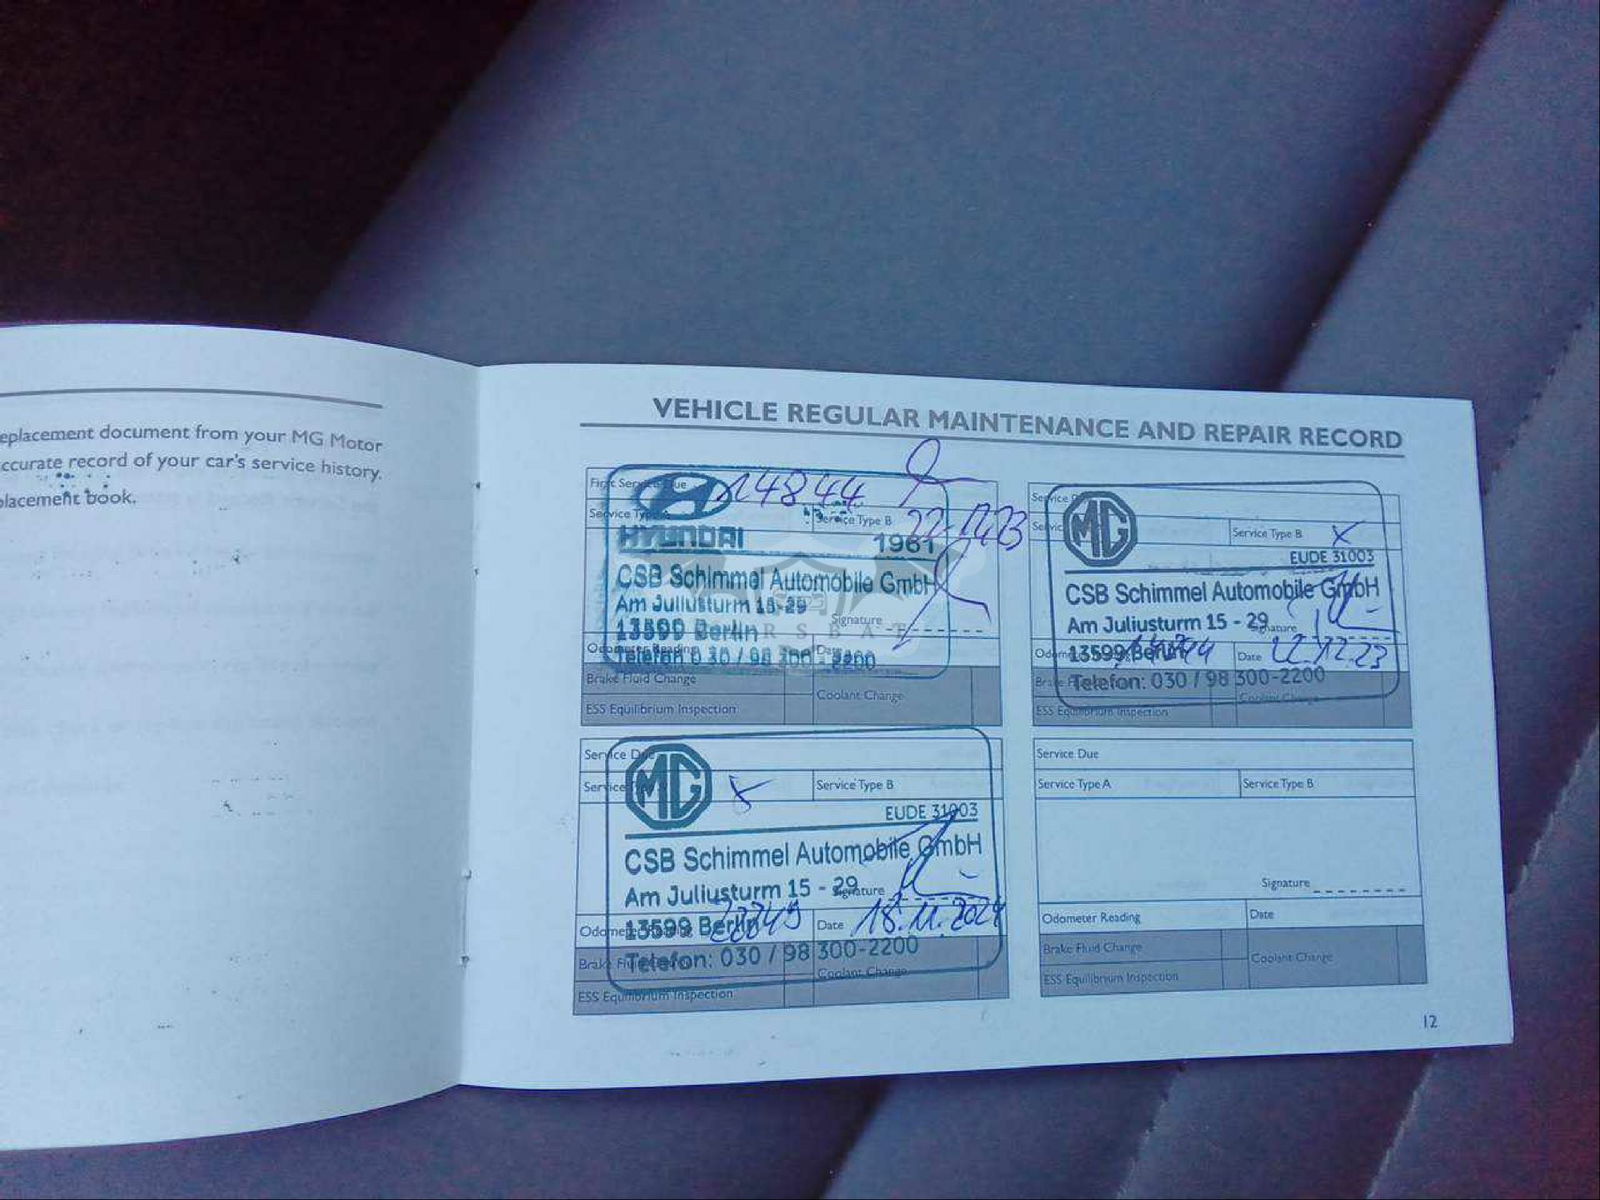 eplacement document from your MG Motor
ccurate record of your car's service history.
placement book.
VEHICLE REGULAR MAINTENANCE AND REPAIR RECORD
First Service Due 14844
Service Type Service Type B 22.12.23
HYUNDAI 1961
CSB Schimmel Automobile GmbH
Am Juliusturm 15-29
Signature
13599 Berlin
Odometer Reading Date
Telefon 0 30 / 98 300 - 2200
Brake Fluid Change Coolant Change
ESS Equilibrium Inspection
Service D
MG
Servic Service Type B X
EUDE 31003
CSB Schimmel Automobile GmbH
Am Juliusturm 15 - 29
Signature
Odom 13599 Berlin 14844 Date 22.12.23
Telefon: 030 / 98 300-2200
Coolant Change
ESS Equilibrium Inspection
Service Du
MG
Service X Service Type B
EUDE 31003
CSB Schimmel Automobile GmbH
Am Juliusturm 15 - 29
Signature
Odome 13599 Berlin Date 18.11.2024
Brake Fl Telefon: 030 / 98 300-2200
Coolant Change
ESS Equilibrium Inspection
Service Due
Service Type A Service Type B
Signature
Odometer Reading Date
Brake Fluid Change Coolant Change
ESS Equilibrium Inspection
12